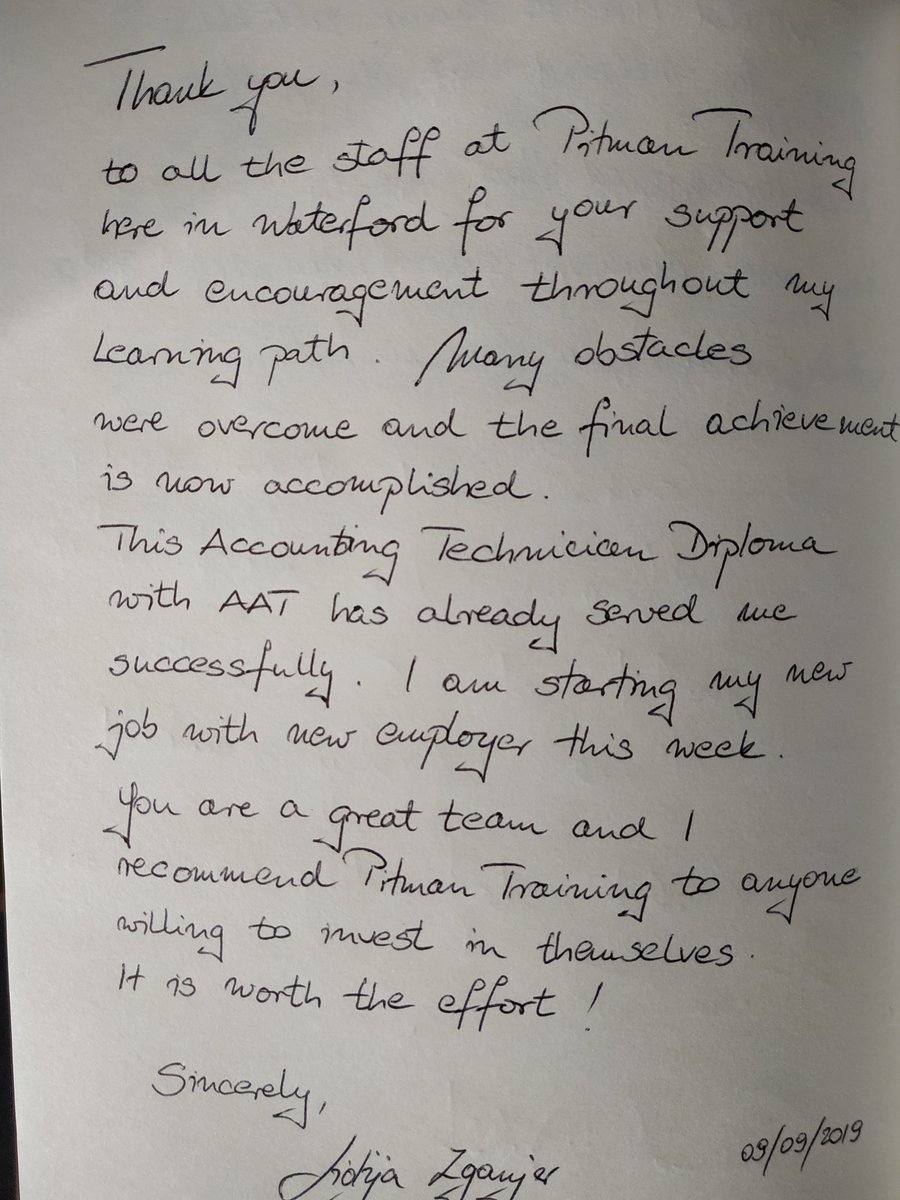 Thank you,
to all the staff at Pitman Training
here in Waterford for your support
and encouragement throughout my
Learning path. Many obstacles
were overcome and the final achievement
is now accomplished.
This Accounting Technician Diploma
with AAT has already served me
successfully. I am starting my new
job with new employer this week.
You are a great team and I
recommend Pitman Training to anyone
willing to invest in themselves.
It is worth the effort!
Sincerely,
09/09/2019